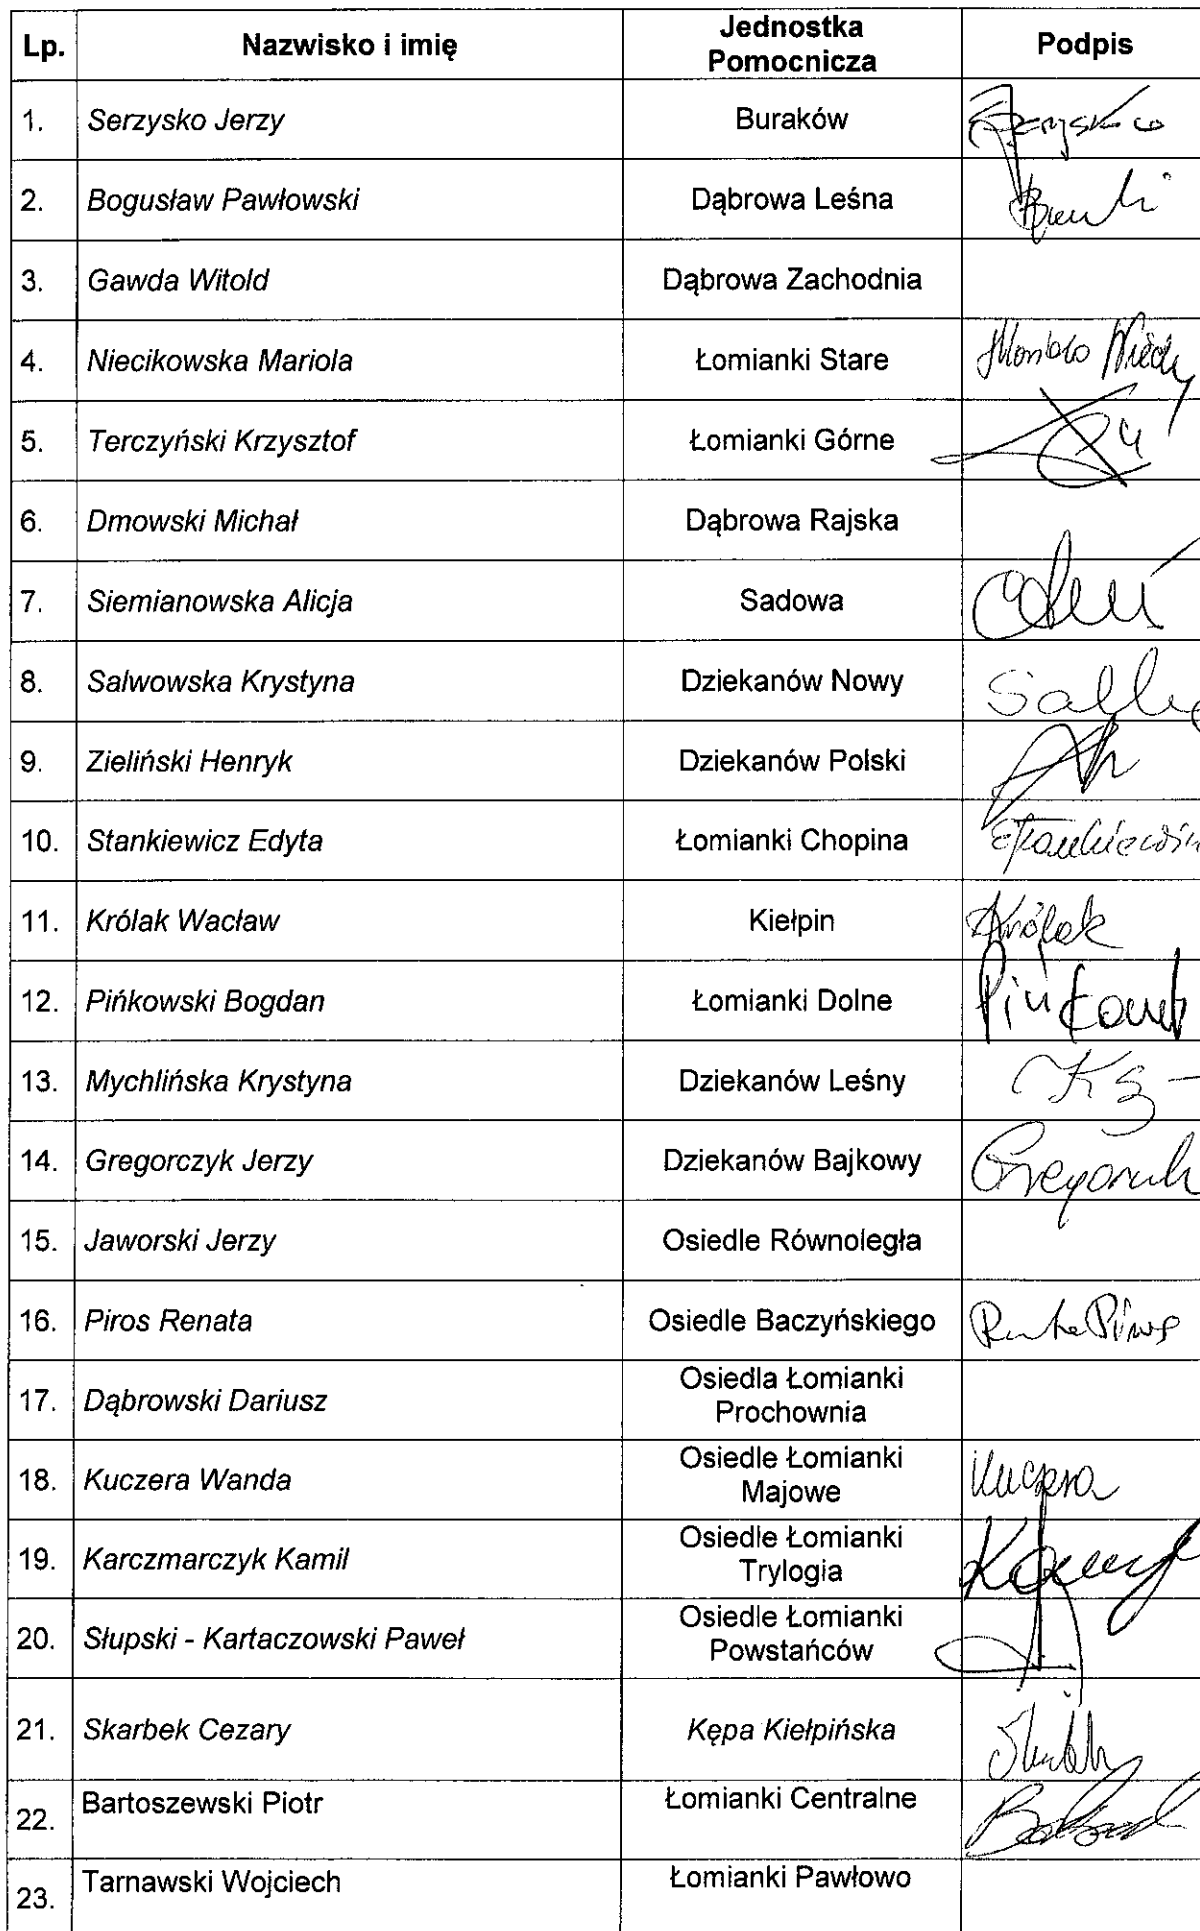 Lp. Nazwisko i imię Jednostka Pomocnicza Podpis
1. Serzysko Jerzy Buraków
2. Bogusław Pawłowski Dąbrowa Leśna
3. Gawda Witold Dąbrowa Zachodnia
4. Niecikowska Mariola Łomianki Stare
5. Terczyński Krzysztof Łomianki Górne
6. Dmowski Michał Dąbrowa Rajska
7. Siemianowska Alicja Sadowa
8. Salwowska Krystyna Dziekanów Nowy
9. Zieliński Henryk Dziekanów Polski
10. Stankiewicz Edyta Łomianki Chopina
11. Królak Wacław Kiełpin Królak
12. Pińkowski Bogdan Łomianki Dolne
13. Mychlińska Krystyna Dziekanów Leśny
14. Gregorczyk Jerzy Dziekanów Bajkowy
15. Jaworski Jerzy Osiedle Równoległa
16. Piros Renata Osiedle Baczyńskiego
17. Dąbrowski Dariusz Osiedla Łomianki Prochownia
18. Kuczera Wanda Osiedle Łomianki Majowe
19. Karczmarczyk Kamil Osiedle Łomianki Trylogia
20. Słupski - Kartaczowski Paweł Osiedle Łomianki Powstańców
21. Skarbek Cezary Kępa Kiełpińska
22. Bartoszewski Piotr Łomianki Centralne
23. Tarnawski Wojciech Łomianki Pawłowo